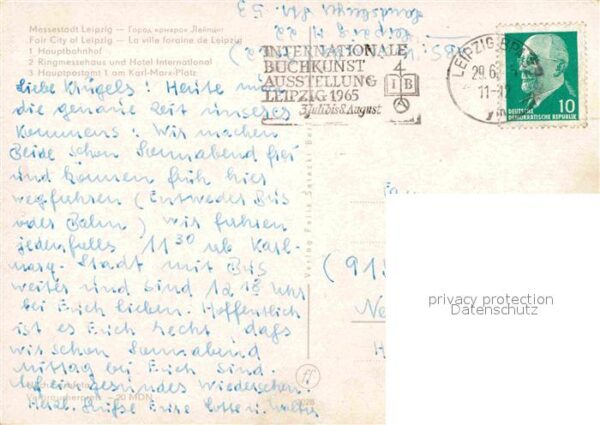 Messestadt Leipzig — Город ярмарок Лейпциг
Fair City of Leipzig — La ville foraine de Leipzig
1 Hauptbahnhof
2 Ringmessehaus und Hotel International
3 Hauptpostamt 1 am Karl-Marx-Platz
INTERNATIONALE
BUCHKUNST
AUSSTELLUNG
LEIPZIG 1965
3. Juli bis 8. August
I B A
LEIPZIG BPA
29.6.
11-12
DEUTSCHE
DEMOKRATISCHE REPUBLIK
10
Liebe Krügels! Heute nun
die genaue Zeit unseres
Kommens: Wir machen
Beide schon Sonnabend frei
und können früh hier
wegfahren (Entweder Bus
oder Bahn) wir fahren
jedenfalls 11 30 ab Karl-
Marx-Stadt mit Bus
weiter und sind 12 18 Uhr
bei Erich lieben. Hoffentlich
ist es Erich recht, dass
wir schon Sonnabend
Mittag bei Erich sind.
Auf ein gesundes Wiedersehen!
Herzl. Grüße Eure Lotte u. Walter
20 MDN
Verlag Felix Setecki
(915
Ne
H
privacy protection
Datenschutz